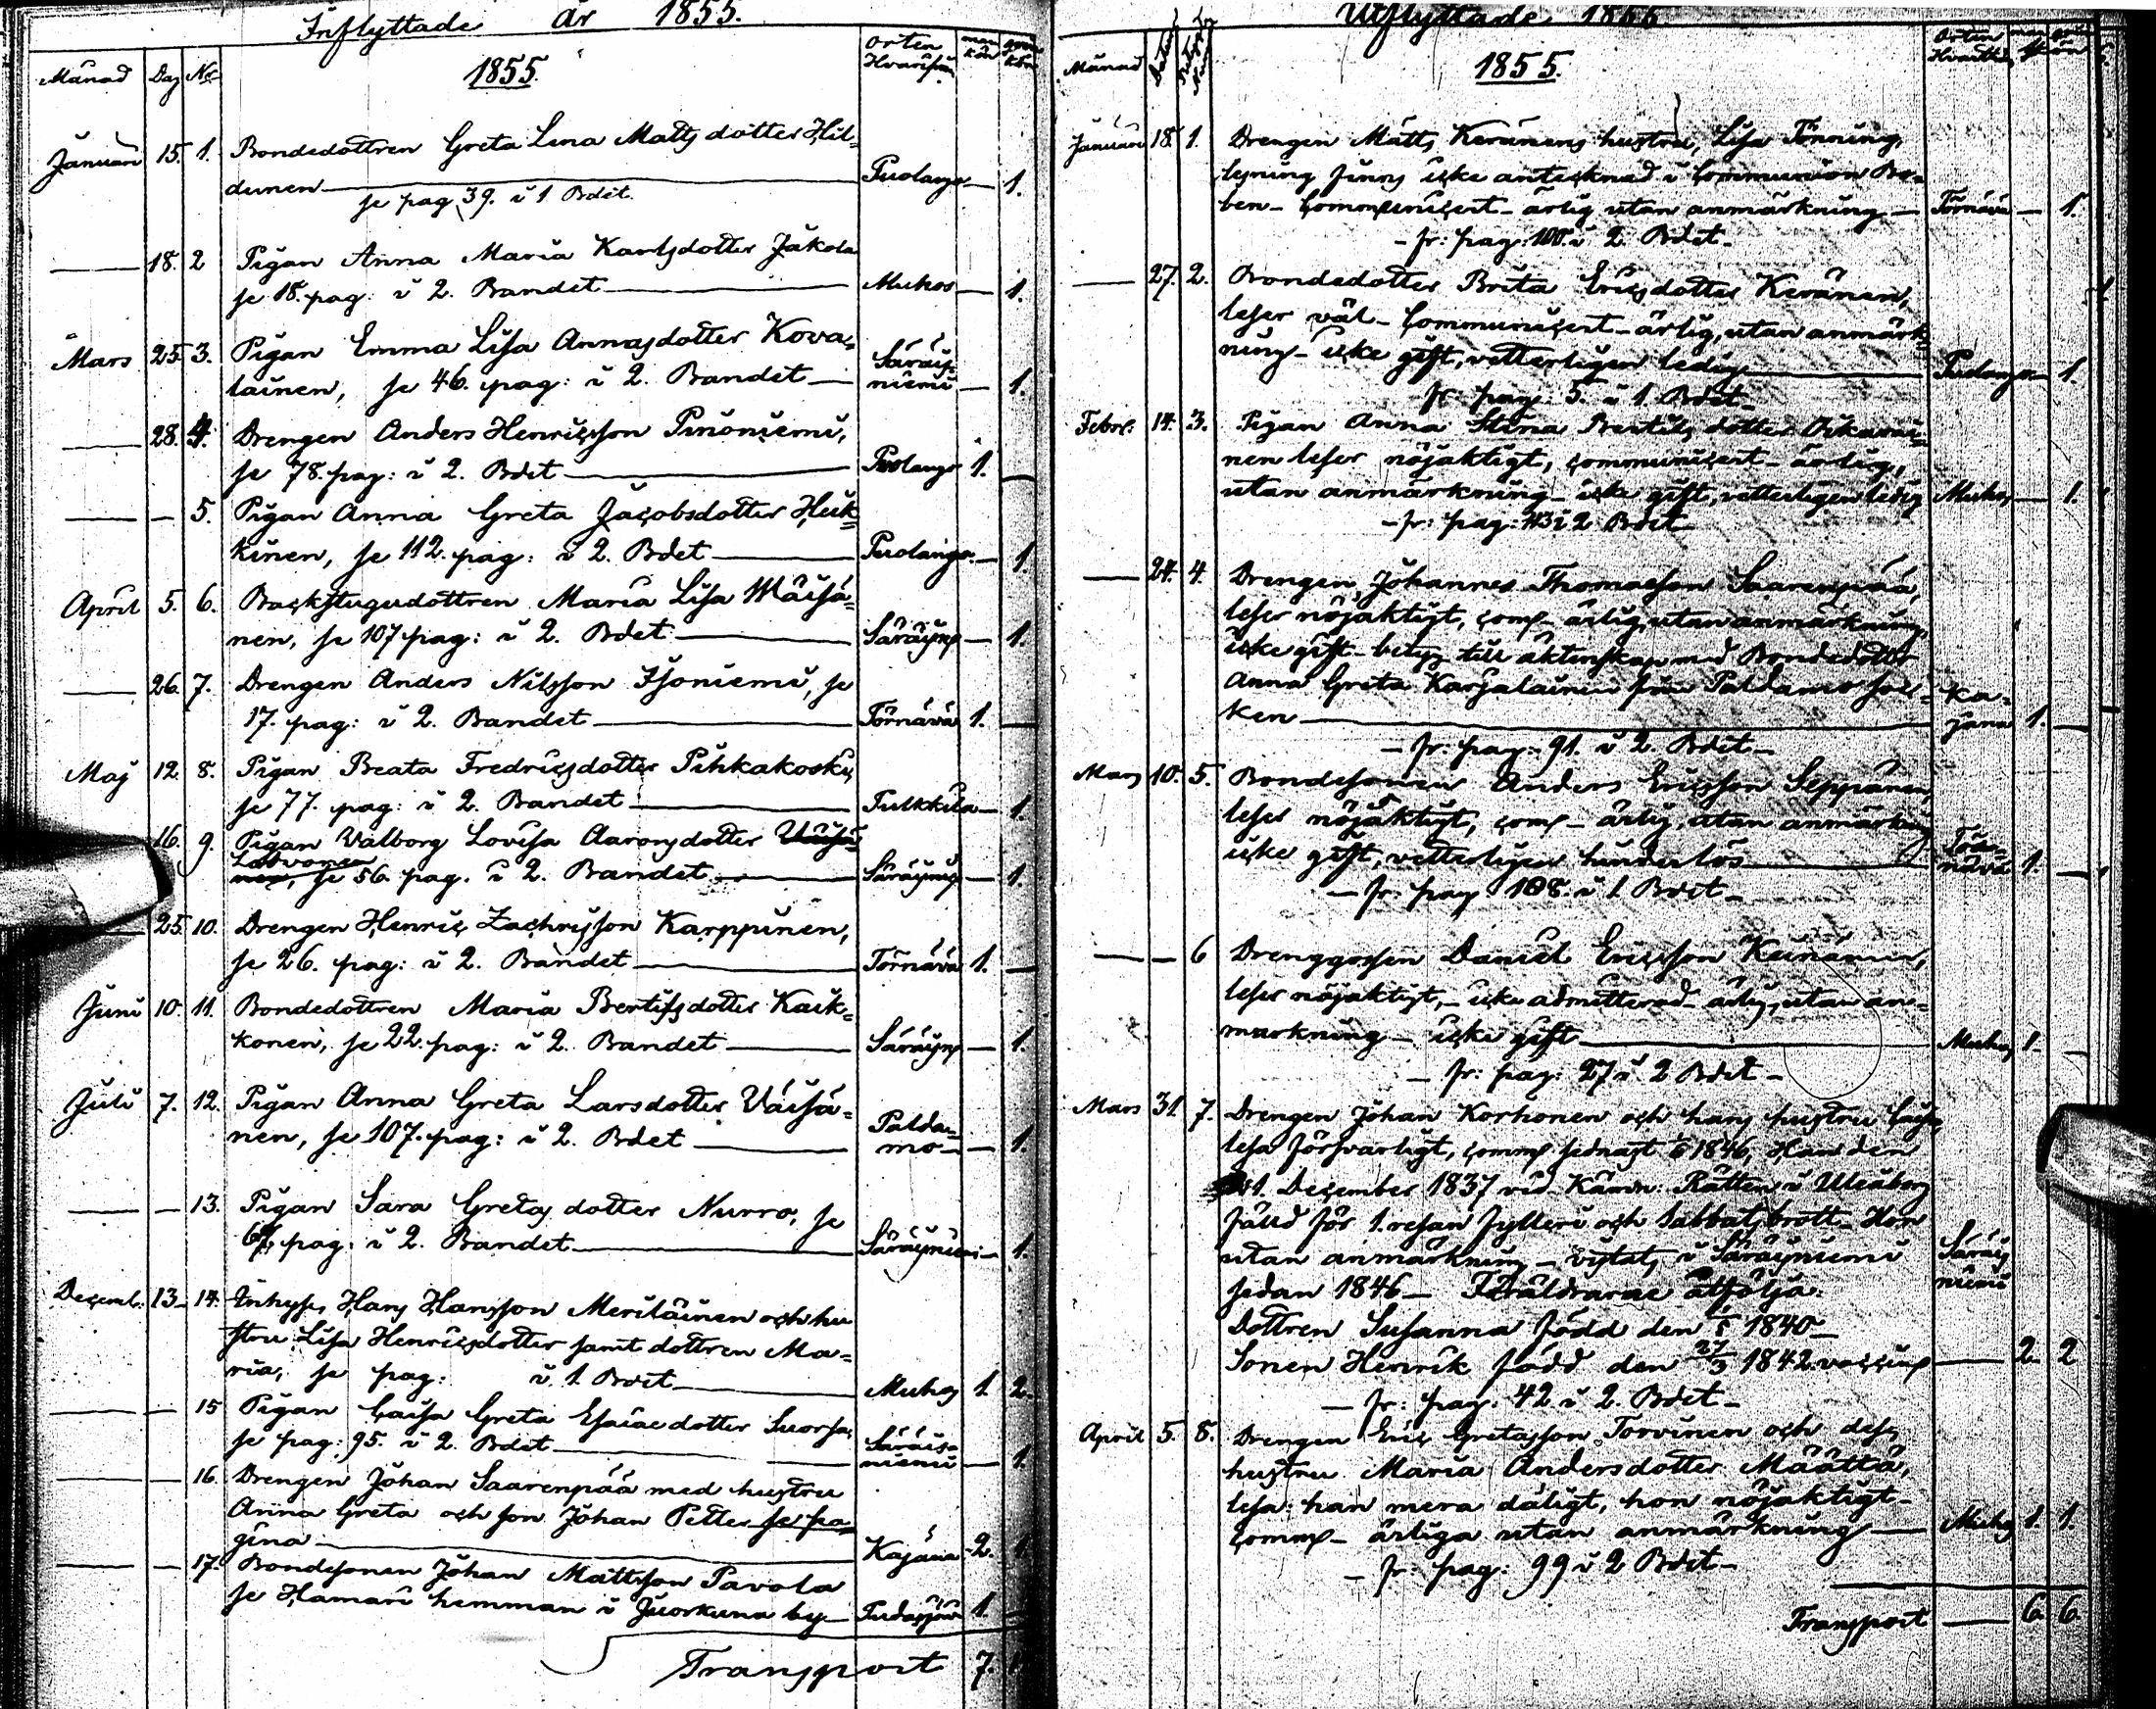 Inflyttade år 1855.
Månad Dag No 1855. Orten Hvarifrån man kön qvin kön
Januari 15. 1. Bondedottren Greta Lena Matts dotter Hil-
dunen Puolango 1.
se pag 39. i 1 Bdet.
18. 2 Pigan Anna Maria Karlsdotter Jakola
se 18. pag: i 2. Bandet Muhos 1.
Mars 25. 3. Pigan Emma Lisa Annasdotter Kova=
lainen, se 46. pag: i 2. Bandet Säräis=
niemi 1.
28. 4. Drengen Anders Henricsson Pinoniemi,
se 78. pag: i 2. Bdet Puolango 1.
5. Pigan Anna Greta Jacobsdotter Heik=
kinen, se 112. pag: i 2. Bdet Puolango 1.
April 5. 6. Backstugudottren Maria Lisa Wäisä=
nen, se 107 pag: i 2. Bdet 1.
26. 7. Drengen Anders Nilsson Isoniemi, se
17. pag: i 2. Bandet Törnävä 1.
Maj 12. 8. Pigan Beata Fredricsdotter Pihkakoski,
se 77. pag: i 2. Bandet Pulkkila 1.
16. 9. Pigan Walborg Lovisa Aaronsdotter
Latvonen
nen, se 56. pag. i 2. Bandet 1.
25. 10. Drengen Henric Zachrisson Karppinen,
se 26. pag: i 2. Bandet Törnävä 1.
Juni 10. 11. Bondedottren Maria Bertilsdotter Kaik=
konen, se 22. pag: i 2. Bandet 1.
Juli 7. 12. Pigan Anna Greta Larsdotter Väisä=
nen, se 107. pag: i 2. Bdet Palda=
mo 1.
13. Pigan Sara Gretas dotter Nurro, se
pag: i 2. Bandet Säräisniemi 1.
Decemb. 13. 14. Inhyses Hans Hansson Meriläinen och hu
stru Lisa Henricsdotter samt dottren Ma=
ria, se pag: i 1. Bdet Muhos 1. 2.
15 Pigan Caisa Greta Esaiaedotter Suorsa,
se pag: 95. i 2. Bdet Säräis=
niemi 1.
16. Drengen Johan Saarenpää med hustru
Anna Greta och son Johan Petter se pa=
gina Kajana 2. 1.
17. Bondesonen Johan Mattsson Pavola
se Hamari hemman i Juorkuna by Pudasjärvi 1.
Transport 7.
Utflyttade
Månad 1855. Orten Hvarthän
Januari 18. 1. Drengen Matts Keränens hustru, Lisa Tönning,
lesning finns icke antecknad i Communion Bo=
ken - Communicert - ärlig utan anmärkning Törnävä 1.
- fr: pag: 100. i 2. Bdet -
27. 2. Bondedotter Brita Ericsdotter Keränen,
leser väl - Communicert - ärlig, utan anmärk=
ning - icke gift, vetterligen ledig Puolango 1.
fr: pag: 5. i 1 Bdet -
Febr. 14. 3. Pigan Anna Stina Bertils dotter Oikarai=
nen leser nöjaktigt, communicert - ärlig,
utan anmärkning - icke gift, vetterligen ledig Muhos 1.
- fr: pag: i 2 Bdet
24. 4. Drengen Johannes Thomasson Saarenpää,
leser nöjaktigt, comm - ärlig, utan anmärkning,
icke gift - betyg till äktenskap med Bondedotter
Anna Greta Karjalainen från Paldamo Soc= Ka=
ken jana 1.
- fr: pag: 91. i 2. Bdet -
Mars 10. 5. Bondesonen Anders Ericsson Seppänen,
leser nöjaktigt, comm - ärlig, utan anmärkning
icke gift, vetterligen hinderlös Tör=
nävä 1.
- fr: pag 108. i 1 Bdet -
6 Drenggossen Daniel Ericsson Keinänen,
leser nöjaktigt, - icke admitterad - ärlig, utan an=
märkning - icke gift Muhos 1.
- fr: pag: 27 i 2 Bdet -
Mars 31. 7. Drengen Johan Korhonen och hans hustru Caisa
lesa försvarligt, comm. sednast 1846, Han den
21. December 1837 vid Kämn: Rätten i Uleåborg
fälld för 1. resan fylleri och Sabbatsbrott. Hon
utan anmärkning - vistats i Säräisniemi Säräis
niemi
sedan 1846 - Föräldrarne åtfölja:
Dottren Susanna född den 1840 -
Sonen Henrik född den 27/3 1842 2. 2
- fr: pag: 42 i 2. Bdet -
April 5. 8. Drengen Eric Gretasson Torvinen och dess
hustru Maria Andersdotter Määttä,
lesa: han mera dåligt, hon nöjaktigt -
comm - ärliga utan anmärkning Muhos 1. 1.
- fr: pag: 99 i 2 Bdet -
Transport 6. 6.